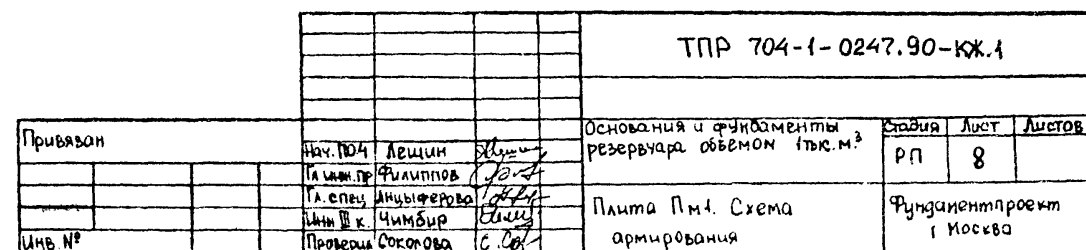 ТПР 704-1-0247.90-КЖ.1
Привязан
Инв. №
Нач. ПО4 Лещин
Гл инж.пр Филиппов
Гл. спец Анцыферова
Инж III к. Чимбир
Проверил Соколова
Основания и фундаменты
резервуара объемом 1тыс.м.³
Стадия Лист Листов
РП 8
Плита Пм1. Схема
армирования
Фундаментпроект
г Москва